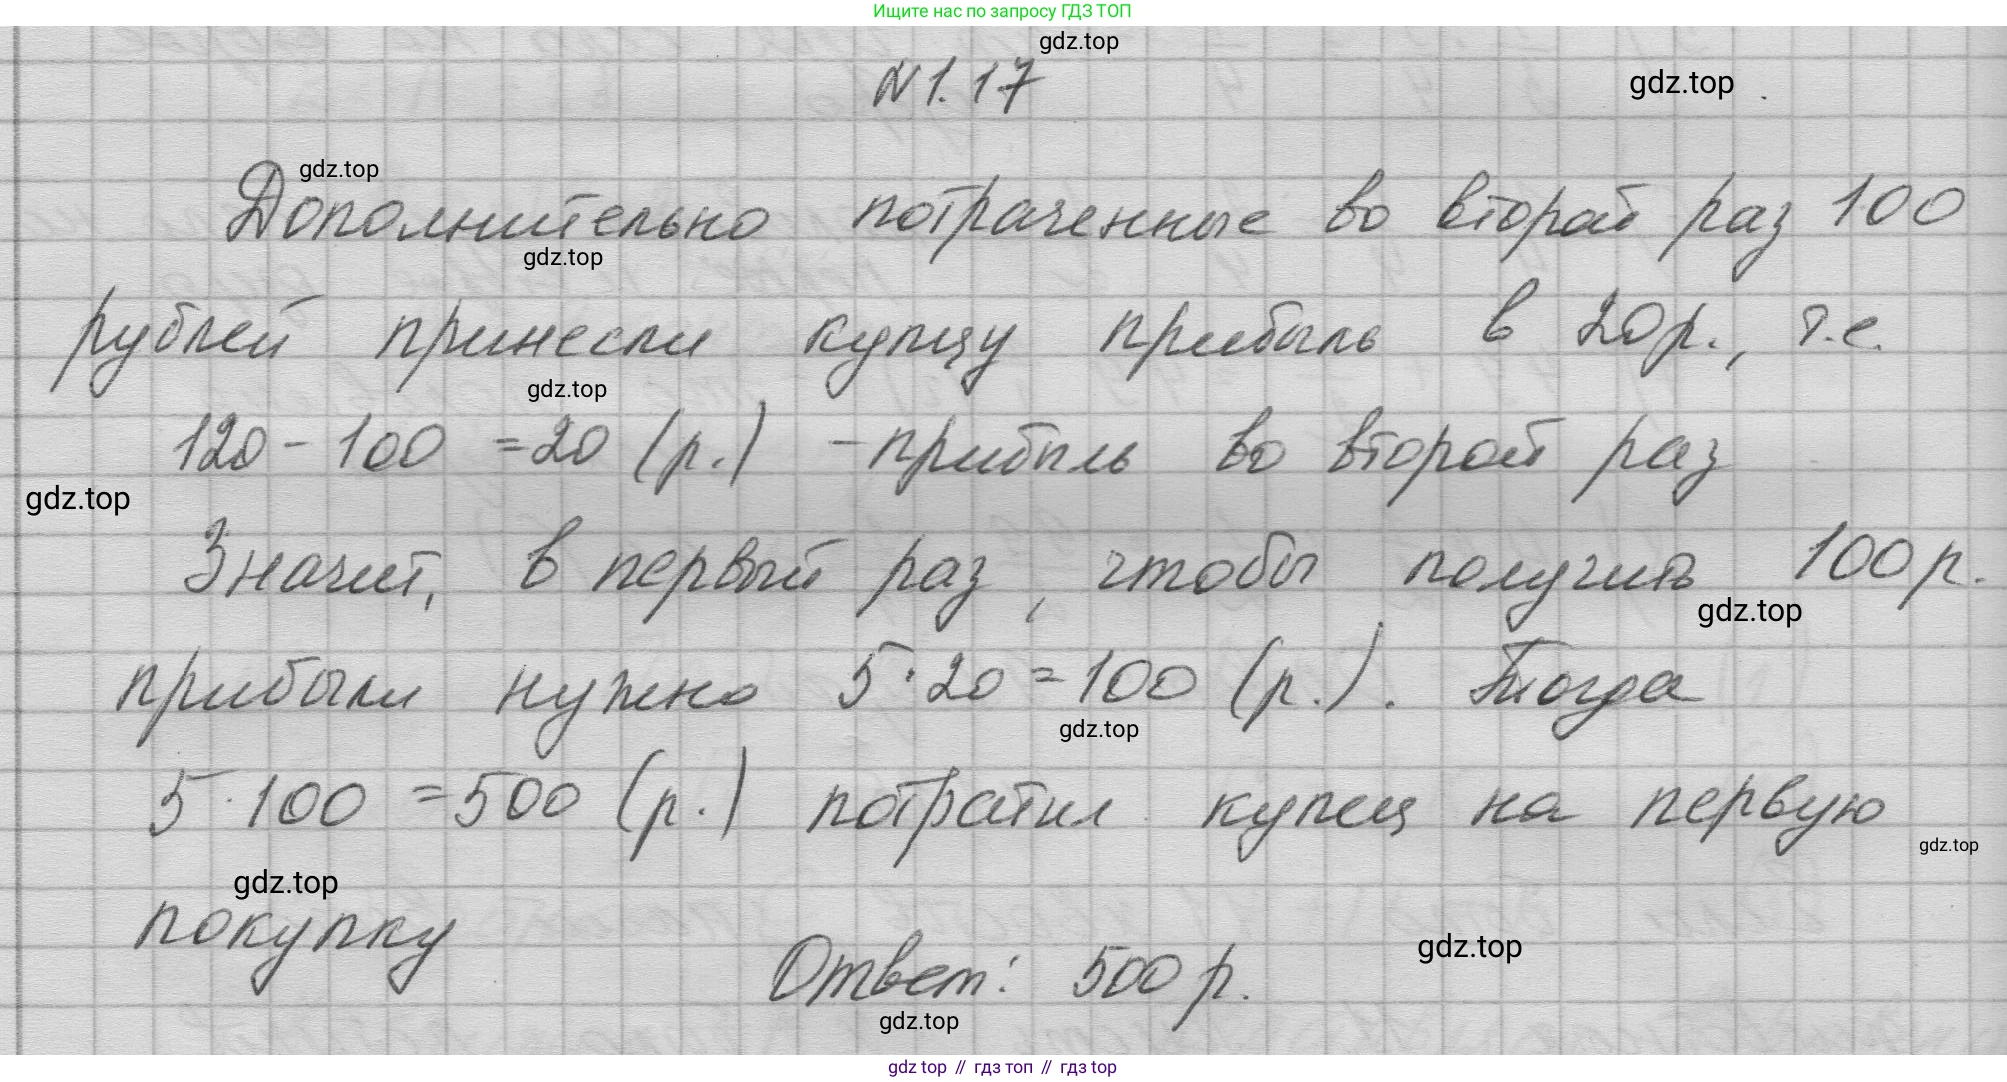 Ищите нас по запросу ГДЗ ТОП
gdz.top
N 1.17
gdz.top
gdz.top
Дополнительно потраченные во второй раз 100
gdz.top
рублей принесли купцу прибыль в 20р., т.е.
gdz.top
120 - 100 = 20 (р.) - прибыль во второй раз
gdz.top
Значит, в первый раз, чтобы получить 100 р.
gdz.top
прибыли нужно 5 · 20 = 100 (р.). Тогда
gdz.top
5 · 100 = 500 (р.) потратил купец на первую
gdz.top
gdz.top
покупку
gdz.top
Ответ: 500 р.
gdz.top
gdz top // гдз топ // gdz top